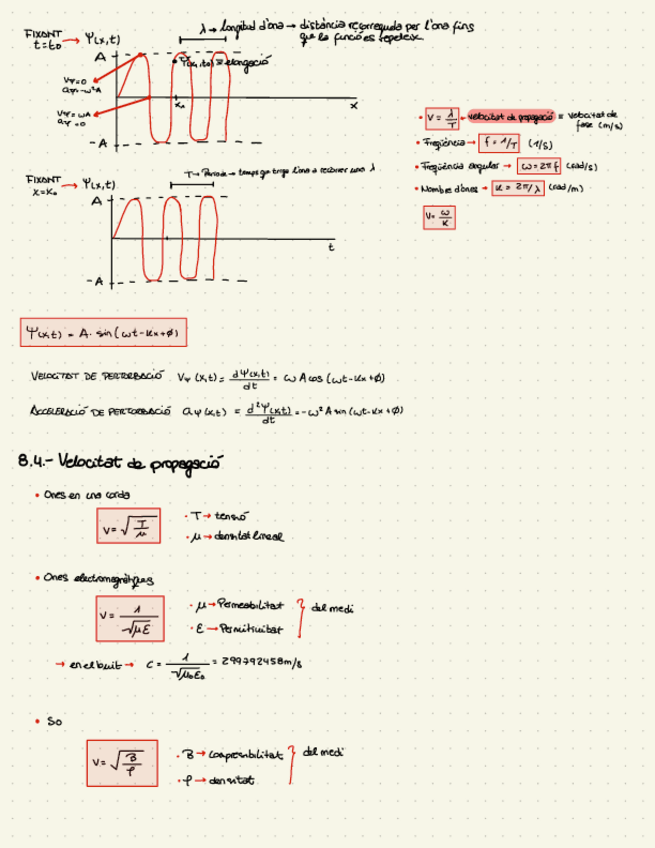 λ → longitud d'ona → distància recorreguda per l'ona fins
que la funció es repeteix.
FIXANT
t=t₀ → Ψ(x,t)
A
Ψ(x₁,t₀) ≡ elongació
Vψ=0
aψ=-ω²A
Vψ=ωA
aψ=0
x₁
x
-A
• V = λ/T → velocitat de propagació ≡ velocitat de
fase (m/s)
• Freqüència → f = 1/T (1/s)
• Freqüència angular → ω = 2πf (rad/s)
• Nombre d'ones → K = 2π/λ (rad/m)
V = ω/K
T → Període → temps que triga l'ona a recórrer una λ
FIXANT
x=x₀ → Ψ(x,t)
A
t
-A
Ψ(x,t) = A · sin(ωt-Kx+ϕ)
VELOCITAT DE PERTORBACIÓ Vψ(x,t) = dΨ(x,t)/dt = ωA cos(ωt-Kx+ϕ)
ACCELERACIÓ DE PERTORBACIÓ aψ(x,t) = d²Ψ(x,t)/dt = -ω²A sin(ωt-Kx+ϕ)
8.4.- Velocitat de propagació
• Ones en una corda
V = √(T/μ)
· T → tensió
· μ → densitat lineal
• Ones electromagnètiques
V = 1/√(με)
· μ → Permeabilitat
· ε → Permitivitat
} del medi
→ en el buit → C = 1/√(μ₀ε₀) = 299792458 m/s
• So
V = √(B/ρ)
· B → compresibilitat
· ρ → densitat
} del medi